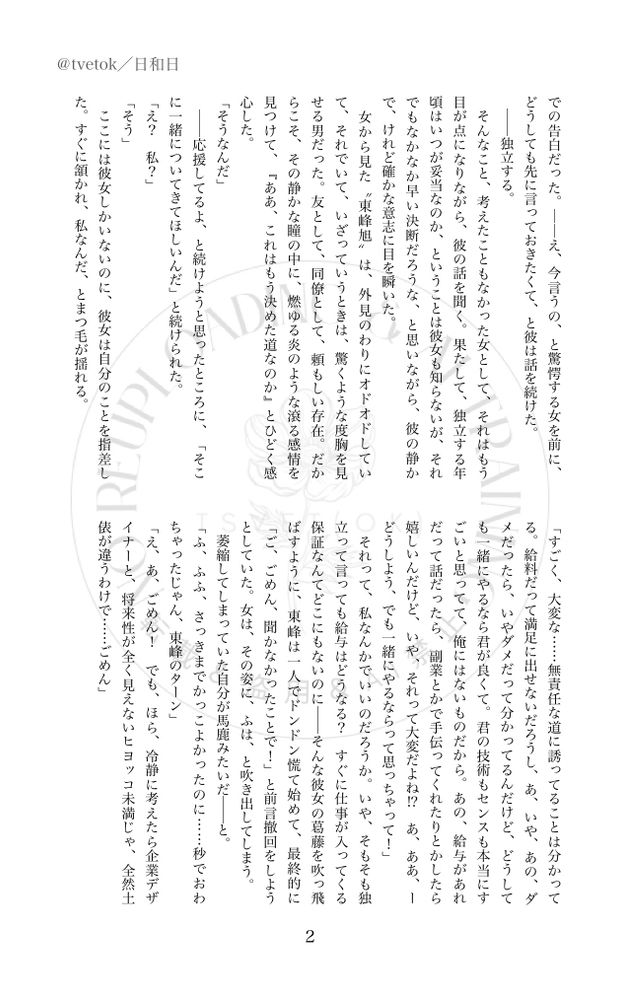 @tvetok／日和日
での告白だった。――え、今言うの、と驚愕する女を前に、
どうしても先に言っておきたくて、と彼は話を続けた。
――独立する。
そんなこと、考えたこともなかった女として、それはもう
目が点になりながら、彼の話を聞く。果たして、独立する年
頃はいつが妥当なのか、ということは彼女も知らないが、それ
でもなかなか早い決断だろうな、と思いながら、彼の静か
で、けれど確かな意志に目を瞬いた。
女から見た〝東峰旭〟は、外見のわりにオドオドしてい
て、それでいて、いざっていうときは、驚くような度胸を見
せる男だった。友として、同僚として、頼もしい存在。だか
らこそ、その静かな瞳の中に、燃ゆる炎のような滾る感情を
見つけて、『ああ、これはもう決めた道なのか』とひどく感
心した。
「そうなんだ」
――応援してるよ、と続けようと思ったところに、「そこ
に一緒についてきてほしいんだ」と続けられた。
「え？　私？」
「そう」
ここには彼女しかいないのに、彼女は自分のことを指差し
た。すぐに頷かれ、私なんだ、とまつ毛が揺れる。
「すごく、大変な……無責任な道に誘ってることは分かって
る。給料だって満足に出せないだろうし、あ、いや、あの、ダ
メだったら、いやダメだって分かってるんだけど、どうして
も一緒にやるなら君が良くて。君の技術もセンスも本当にす
ごいと思ってて、俺にはないものだから。あの、給与があれ
だって話だったら、副業とかで手伝ってくれたりとかしたら
嬉しいんだけど、いや、それって大変だよね!?　あ、ああ、ー
どうしよう、でも一緒にやるならって思っちゃって！」
それって、私なんかでいいのだろうか。いや、そもそも独
立って言っても給与はどうなる？　すぐに仕事が入ってくる
保証なんてどこにもないのに――そんな彼女の葛藤を吹っ飛
ばすように、東峰は一人でドンドン慌て始めて、最終的に
「ご、ごめん、聞かなかったことで！」と前言撤回をしよう
としていた。女は、その姿に、ふは、と吹き出してしまう。
萎縮してしまっていた自分が馬鹿みたいだ――と。
「ふ、ふふ、さっきまでかっこよかったのに……秒でおわ
ちゃったじゃん、東峰のターン」
「え、あ、ごめん！　でも、ほら、冷静に考えたら企業デザ
イナーと、将来性が全く見えないヒヨッコ未満じゃ、全然土
俵が違うわけで……ごめん」
2